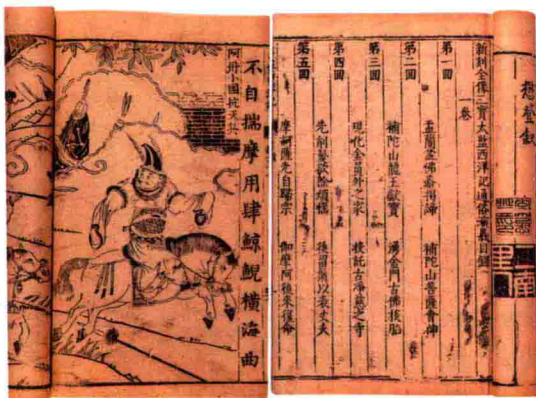 懋登叙
新刻全像三寳太監西洋記通俗演義目錄
一卷
第一回 盂蘭盆佛爺揭諦 補陀山菩薩會神
第二回 補陀山龍王獻寶 湧金門古佛投胎
第三回 現化金員外之家 投託古淨慈之寺
第四回 先削髮欲除煩惱 後留鬚以表丈夫
第五回 摩訶薩先自歸宗 迦摩阿後來復命
不自揣摩用肆鯨鯢橫海曲
阿丹小國抗天兵